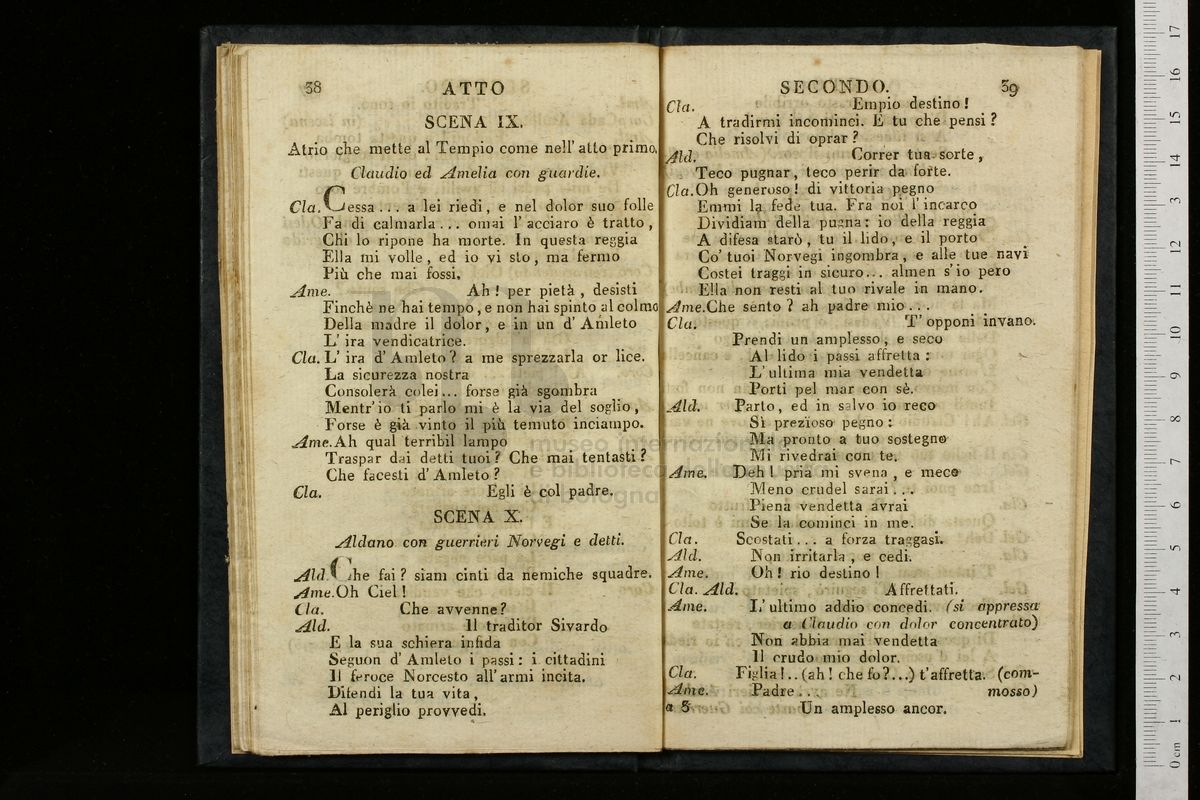 38 ATTO
SCENA IX.
Atrio che mette al Tempio come nell' atto primo.
Claudio ed Amelia con guardie.
Cla. Cessa... a lei riedi, e nel dolor suo folle
Fa di calmarla... omai l' acciaro è tratto,
Chi lo ripone ha morte. In questa reggia
Ella mi volle, ed io vi sto, ma fermo
Più che mai fossi.
Ame. Ah! per pietà, desisti
Finchè ne hai tempo, e non hai spinto al colmo
Della madre il dolor, e in un d' Amleto
L' ira vendicatrice.
Cla. L' ira d' Amleto? a me sprezzarla or lice.
La sicurezza nostra
Consolerà colei... forse già sgombra
Mentr' io ti parlo mi è la via del soglio,
Forse è già vinto il più temuto inciampo.
Ame. Ah qual terribil lampo
Traspar dai detti tuoi? Che mai tentasti?
Che facesti d' Amleto?
Cla. Egli è col padre.
SCENA X.
Aldano con guerrieri Norvegi e detti.
Ald. Che fai? siam cinti da nemiche squadre.
Ame. Oh Ciel!
Cla. Che avvenne?
Ald. Il traditor Sivardo
E la sua schiera infida
Seguon d' Amleto i passi: i cittadini
Il feroce Norcesto all' armi incita.
Difendi la tua vita,
Al periglio provvedi.
SECONDO. 39
Cla. Empio destino!
A tradirmi incominci. E tu che pensi?
Che risolvi di oprar?
Ald. Correr tua sorte,
Teco pugnar, teco perir da forte.
Cla. Oh generoso! di vittoria pegno
Emmi la fede tua. Fra noi l' incarco
Dividiam della pugna: io della reggia
A difesa starò, tu il lido, e il porto
Co' tuoi Norvegi ingombra, e alle tue navi
Costei traggi in sicuro... almen s' io pero
Ella non resti al tuo rivale in mano.
Ame. Che sento? ah padre mio...
Cla. T' opponi invano.
Prendi un amplesso, e seco
Al lido i passi affretta:
L' ultima mia vendetta
Porti pel mar con sè.
Ald. Parto, ed in salvo io reco
Sì prezioso pegno:
Ma pronto a tuo sostegno
Mi rivedrai con te.
Ame. Deh! pria mi svena, e meco
Meno crudel sarai...
Piena vendetta avrai
Se la cominci in me.
Cla. Scostati... a forza traggasi.
Ald. Non irritarla, e cedi.
Ame. Oh! rio destino!
Cla. Ald. Affrettati.
Ame. L' ultimo addio concedi. (si appressa
a Claudio con dolor concentrato)
Non abbia mai vendetta
Il crudo mio dolor.
Cla. Figlia!.. (ah! che fo?...) t' affretta. (com-
Ame. Padre... mosso)
a 3 Un amplesso ancor.
museo internazionale
e biblioteca della musica
di bologna
0 cm 1 2 3 4 5 6 7 8 9 10 11 12 13 14 15 16 17